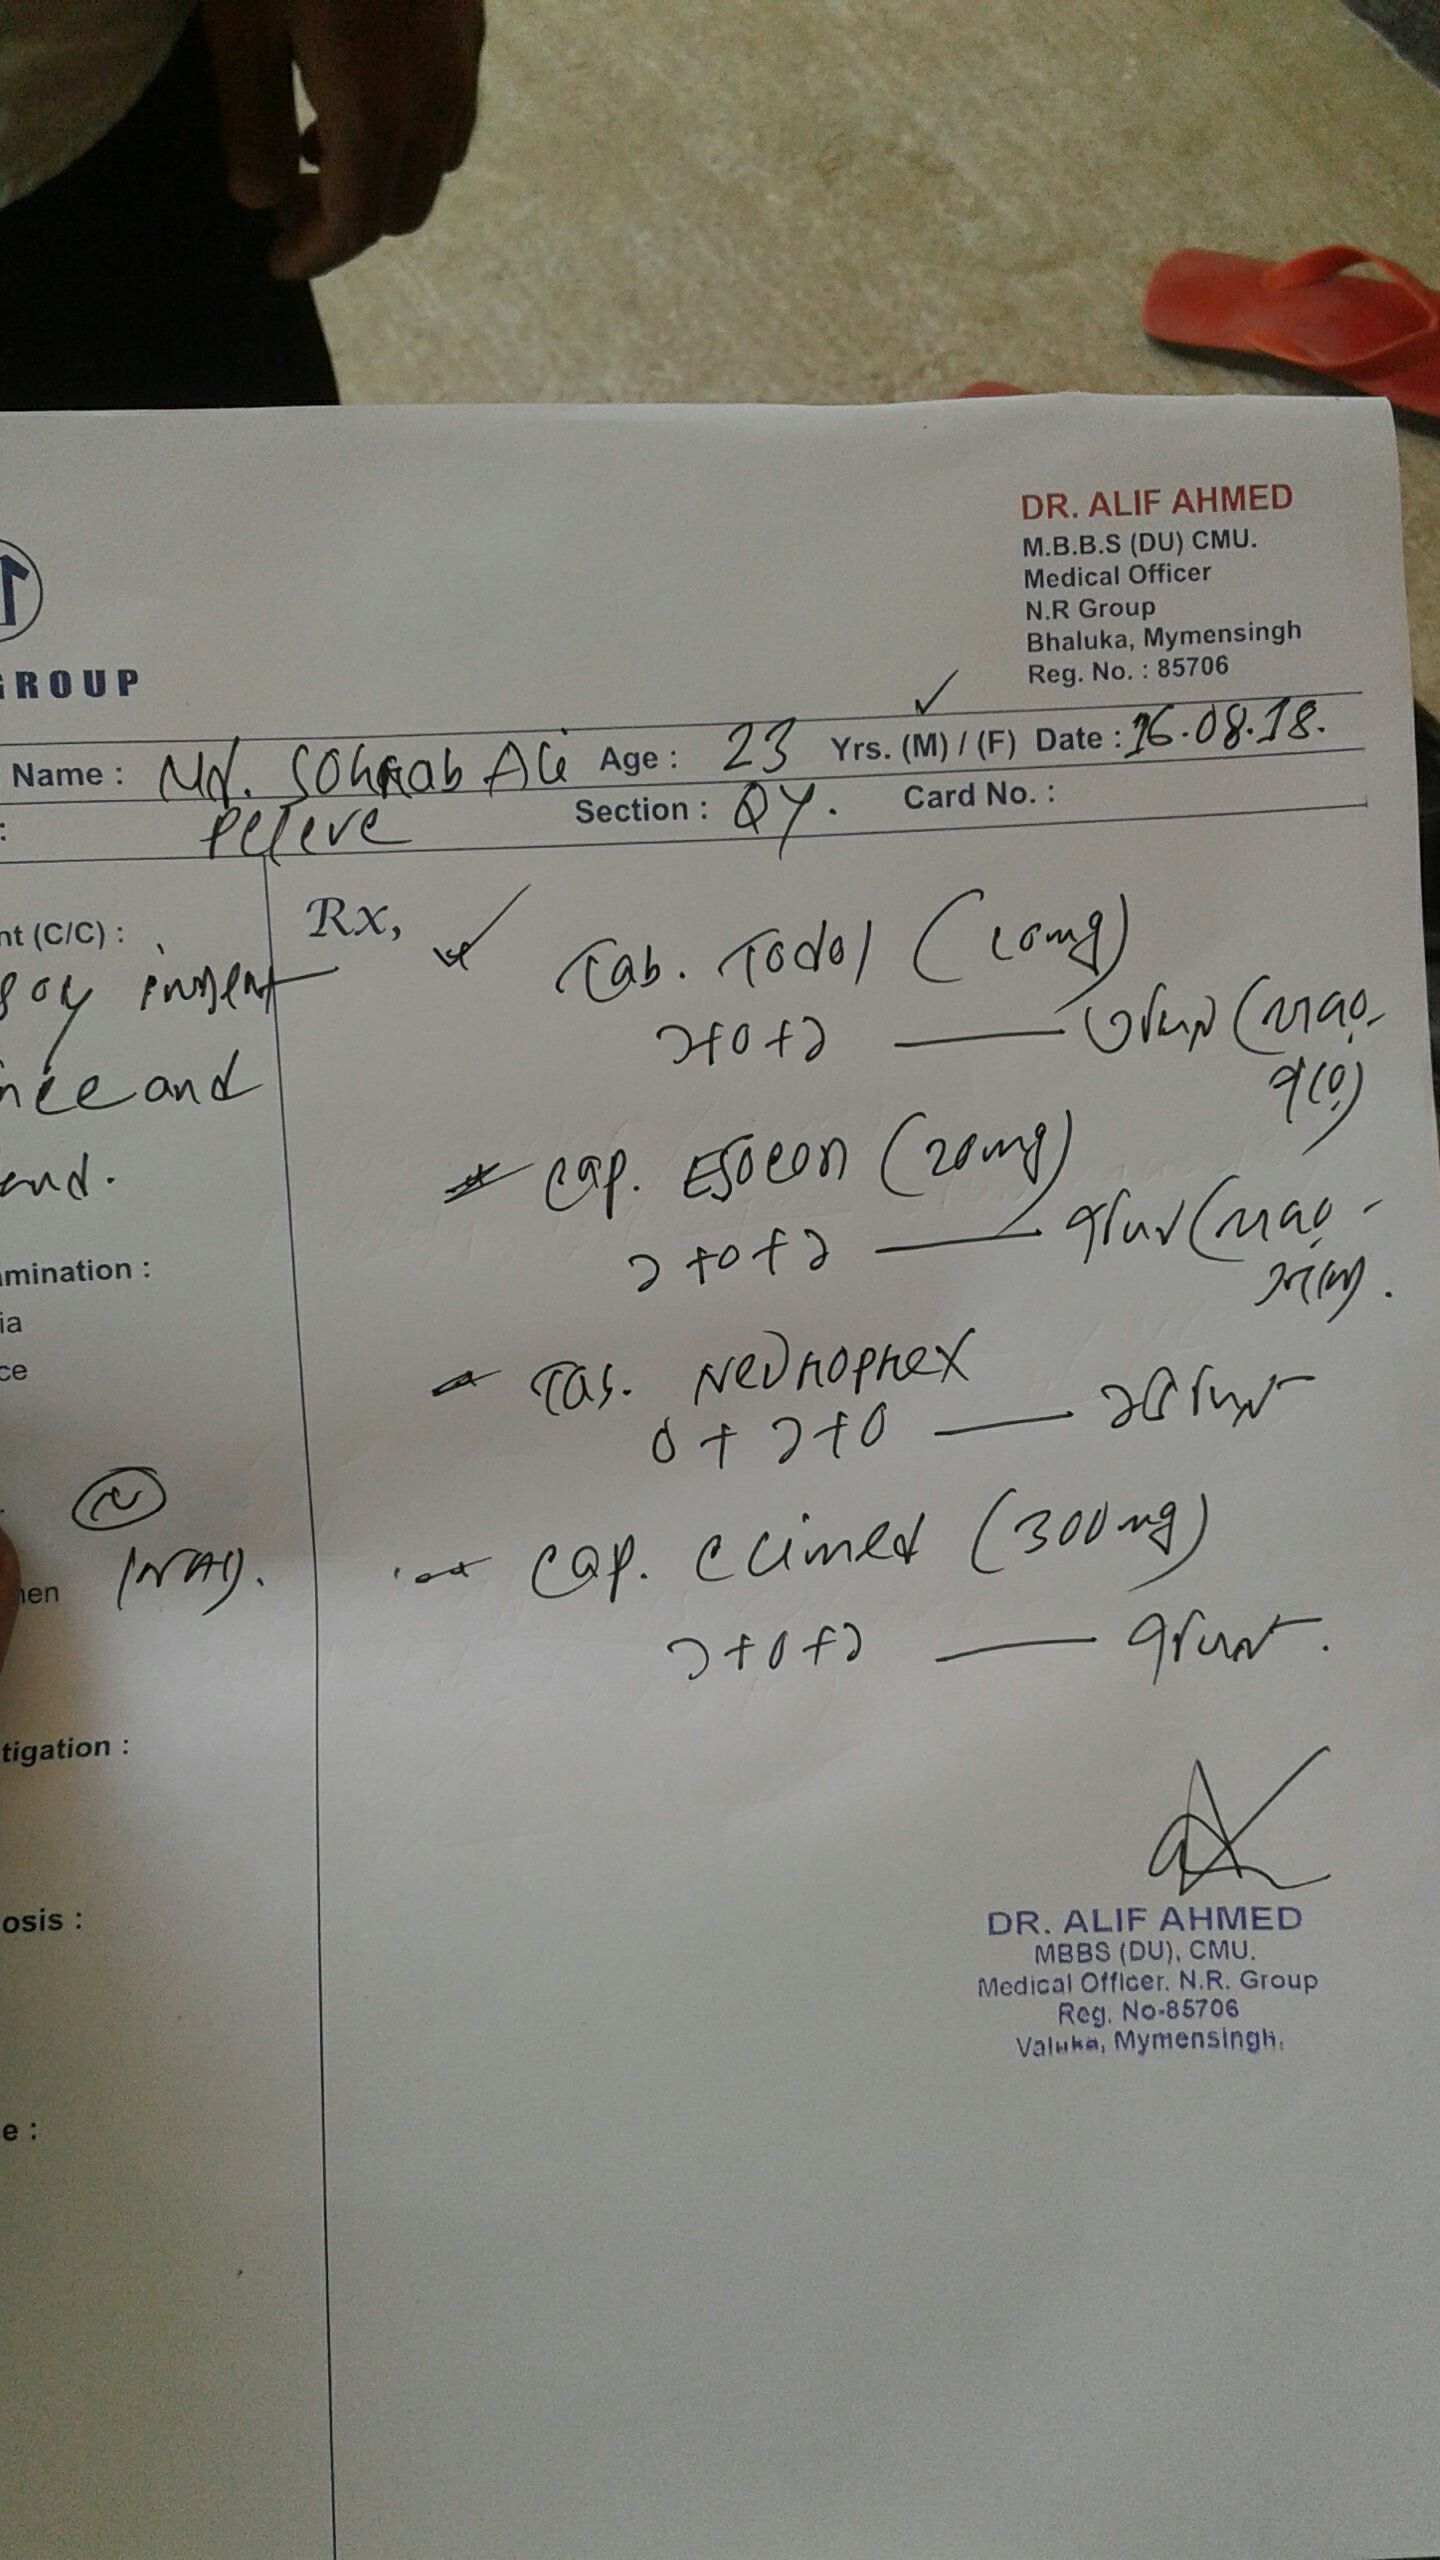 DR. ALIF AHMED
M.B.B.S (DU) CMU.
Medical Officer
N.R Group
Bhaluka, Mymensingh
Reg. No. : 85706
GROUP
Name : Mr. Sohrab Ali Age : 23 Yrs. (M) / (F) Date : 16.08.18.
: Section : QY. Card No. :
nt (C/C) :
nce and
end.
mination :
ia
ce
N
hen
tigation :
osis :
e :
Rx,
Tab. Todol (10mg)
১+০+১ — ৫দিন (খাওয়ার
পরে)
Cap. Esocon (20mg)
১+০+১ — ৭দিন (খাওয়ার
আগে).
Tab. Neuroprex
০+১+০ — ১৫দিন
Cap. Climed (300mg)
১+০+১ — ৭দিন.
DR. ALIF AHMED
MBBS (DU), CMU.
Medical Officer. N.R. Group
Reg. No-85706
Valuka, Mymensingh.